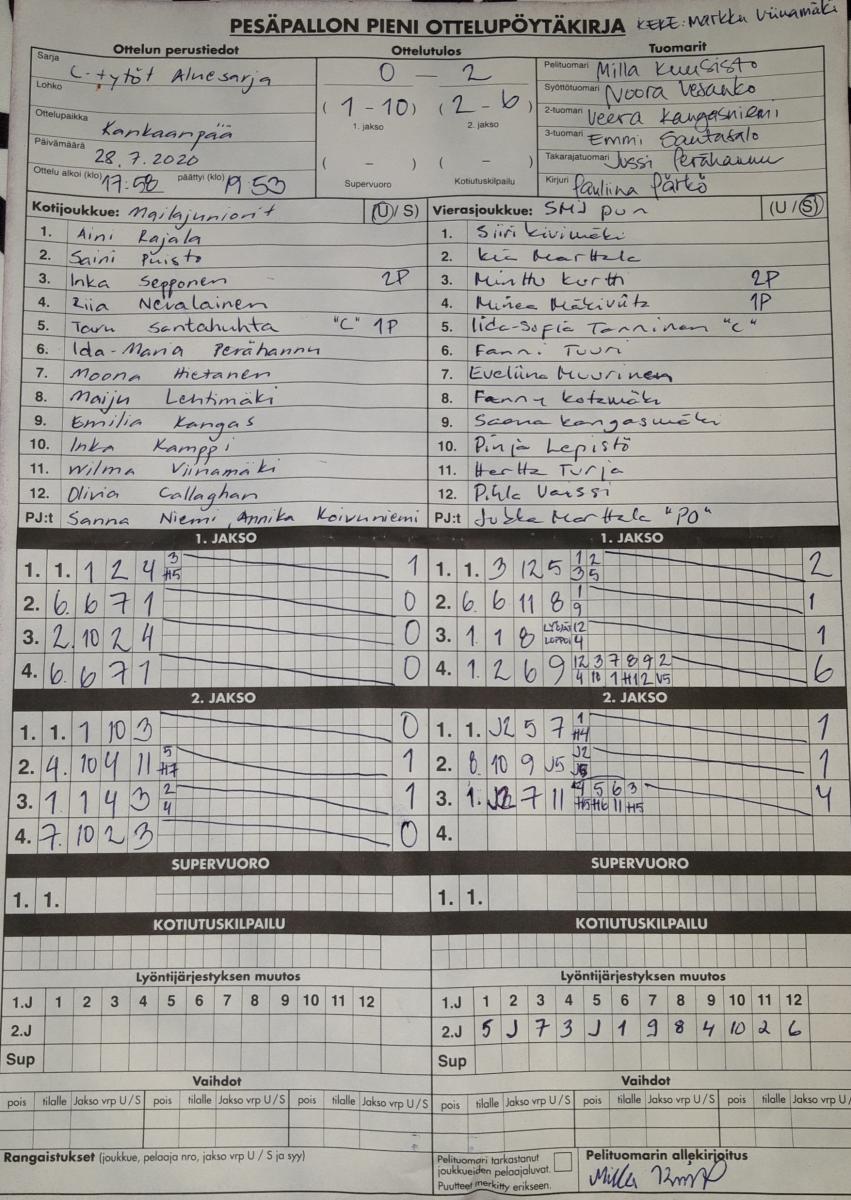 PESÄPALLON PIENI OTTELUPÖYTÄKIRJA KEKE: Markku Viinamäki
Ottelun perustiedot Ottelutulos Tuomarit
Sarja C-tytöt Aluesarja
Lohko
Ottelupaikka Kankaanpää
Päivämäärä 28.7.2020
Ottelu alkoi (klo) 17:58 päättyi (klo) 19:53
0 - 2
(1 - 10) (2 - 6)
1. jakso 2. jakso
( - ) ( - )
Supervuoro Kotiutuskilpailu
Pelituomari Milla Kuusisto
Syöttötuomari Noora Vesanko
2-tuomari Veera Kangasniemi
3-tuomari Emmi Santasalo
Takarajatuomari Jussi Perähannu
Kirjuri Pauliina Pärkö
Kotijoukkue: Mailajuniorit (U/S)
1. Aini Rajala
2. Saini Puisto
3. Inka Sepponen 2P
4. Riia Nevalainen
5. Taru Santahuhta "C" 1P
6. Ida-Maria Perähannu
7. Moona Hietanen
8. Maiju Lehtimäki
9. Emilia Kangas
10. Inka Kamppi
11. Wilma Viinamäki
12. Olivia Callaghan
PJ:t Sanna Niemi, Annika Koivuniemi
Vierasjoukkue: SMJ pun (U/S)
1. Siiri Kivimäki
2. Kia Marttala
3. Minttu Kurtti 2P
4. Minea Mäkiviita 1P
5. Iida-Sofia Tanninen "C"
6. Fanni Tuuri
7. Eveliina Muurinen
8. Fanny Kotamäki
9. Saana Kangasmäki
10. Pinja Lepistö
11. Hertta Turja
12. Pihla Varssi
PJ:t Jukka Marttala "PO"
1. JAKSO
1. 1. 1 2 4 3 H5 1
2. 6. 6 7 1 0
3. 2. 10 2 4 0
4. 6. 6 7 1 0
2. JAKSO
1. 1. 1 10 3 0
2. 4. 10 4 11 5 H7 1
3. 1 1 4 3 2 4 1
4. 7. 10 2 3 0
SUPERVUORO
1. 1.
KOTIUTUSKILPAILU
Lyöntijärjestyksen muutos
1.J 1 2 3 4 5 6 7 8 9 10 11 12
2.J
Sup
Vaihdot
pois tilalle Jakso vrp U/S pois tilalle Jakso vrp U/S pois tilalle Jakso vrp U/S
1. JAKSO
1. 1. 3 12 5 1 2 3 5 2
2. 6. 6 11 8 1 9 1
3. 1. 1 8 LYÖJÄT LOPPUI 12 4 1
4. 1. 2 6 9 12 3 7 8 9 2 4 10 1 H12 V5 6
2. JAKSO
1. 1. J2 5 7 1 H4 1
2. 8. 10 9 J5 J2 1
3. 1. 7 11 4 5 6 3 H5 H6 11 H5 4
4.
SUPERVUORO
1. 1.
KOTIUTUSKILPAILU
Lyöntijärjestyksen muutos
1.J 1 2 3 4 5 6 7 8 9 10 11 12
2.J 5 J 7 3 J 1 9 8 4 10 2 6
Sup
Vaihdot
pois tilalle Jakso vrp U/S pois tilalle Jakso vrp U/S pois tilalle Jakso vrp U/
Rangaistukset (joukkue, pelaaja nro, jakso vrp U / S ja syy)
Pelituomari tarkastanut
joukkueiden pelaajaluvat.
Puutteet merkitty erikseen.
Pelituomarin allekirjoitus